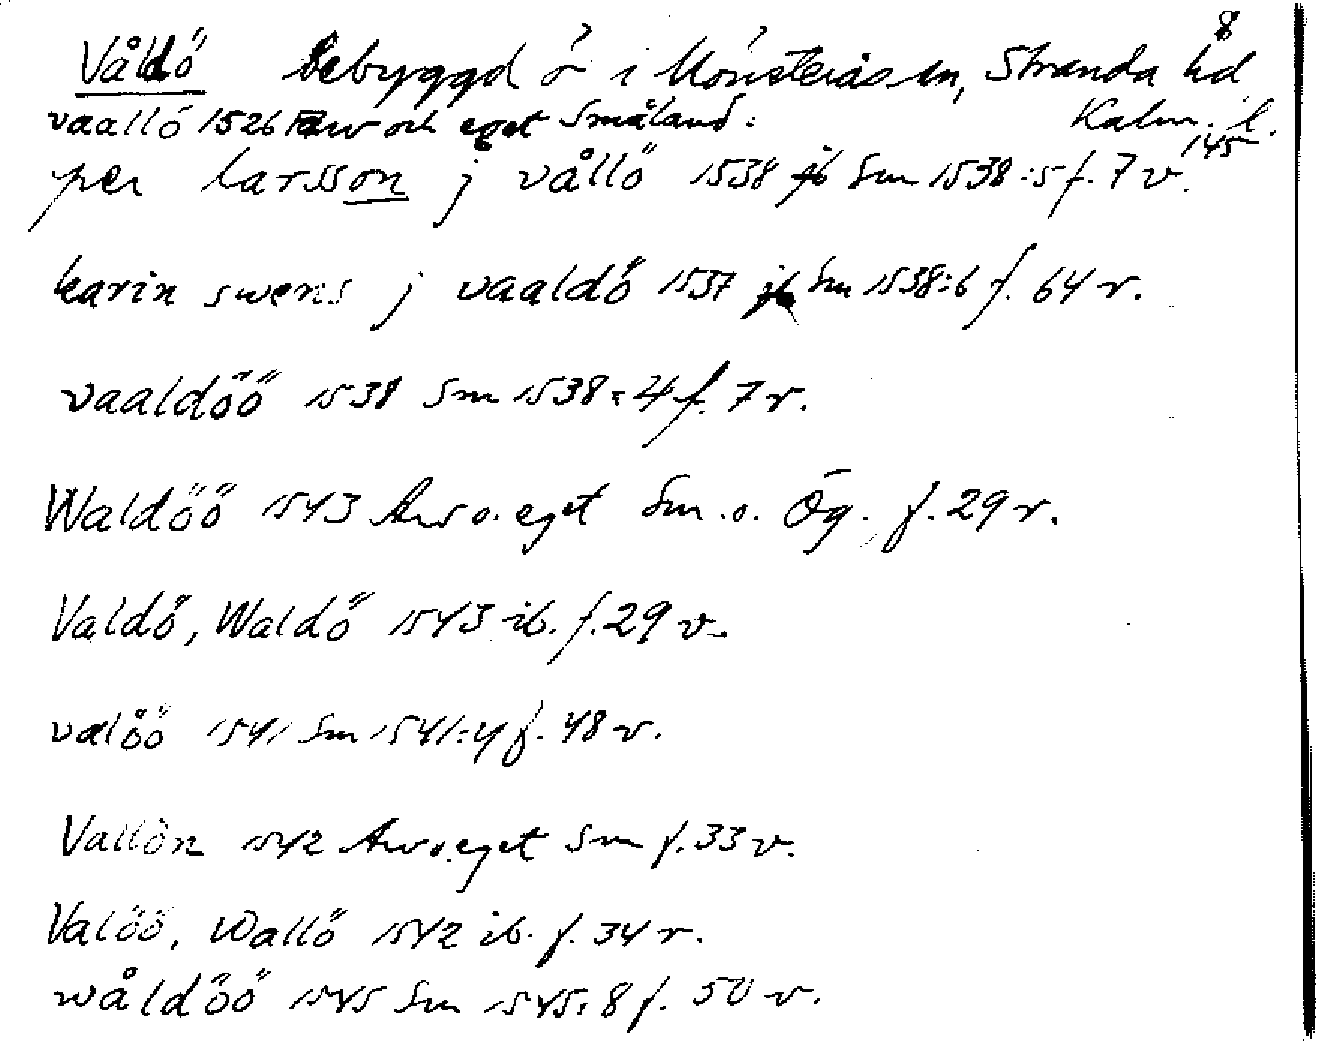 8
Våldö bebyggd ö i Mönsterås sn, Stranda hd
vaallö 1526 Arv och eget Småland: Kalm. l.
145
per larsson j vållö 1538 jb Sm 1538:5 f. 7 v.
karin swens j vaaldö 1537 jb Sm 1538:6 f. 64 r.
vaaldöö 1538 Sm 1538:4 f. 7 r.
Waldöö 1543 Arv o. eget Sm. o. Ög. f. 29 r.
Valdö, Waldö 1543 ib. f. 29 v.
valöö 1541 Sm 1541:4 f. 48 r.
Vallön 1542 Arv o. eget Sm f. 33 v.
Valöö, Wallö 1542 ib. f. 34 r.
wåldöö 1545 Sm 1545:8 f. 50 v.